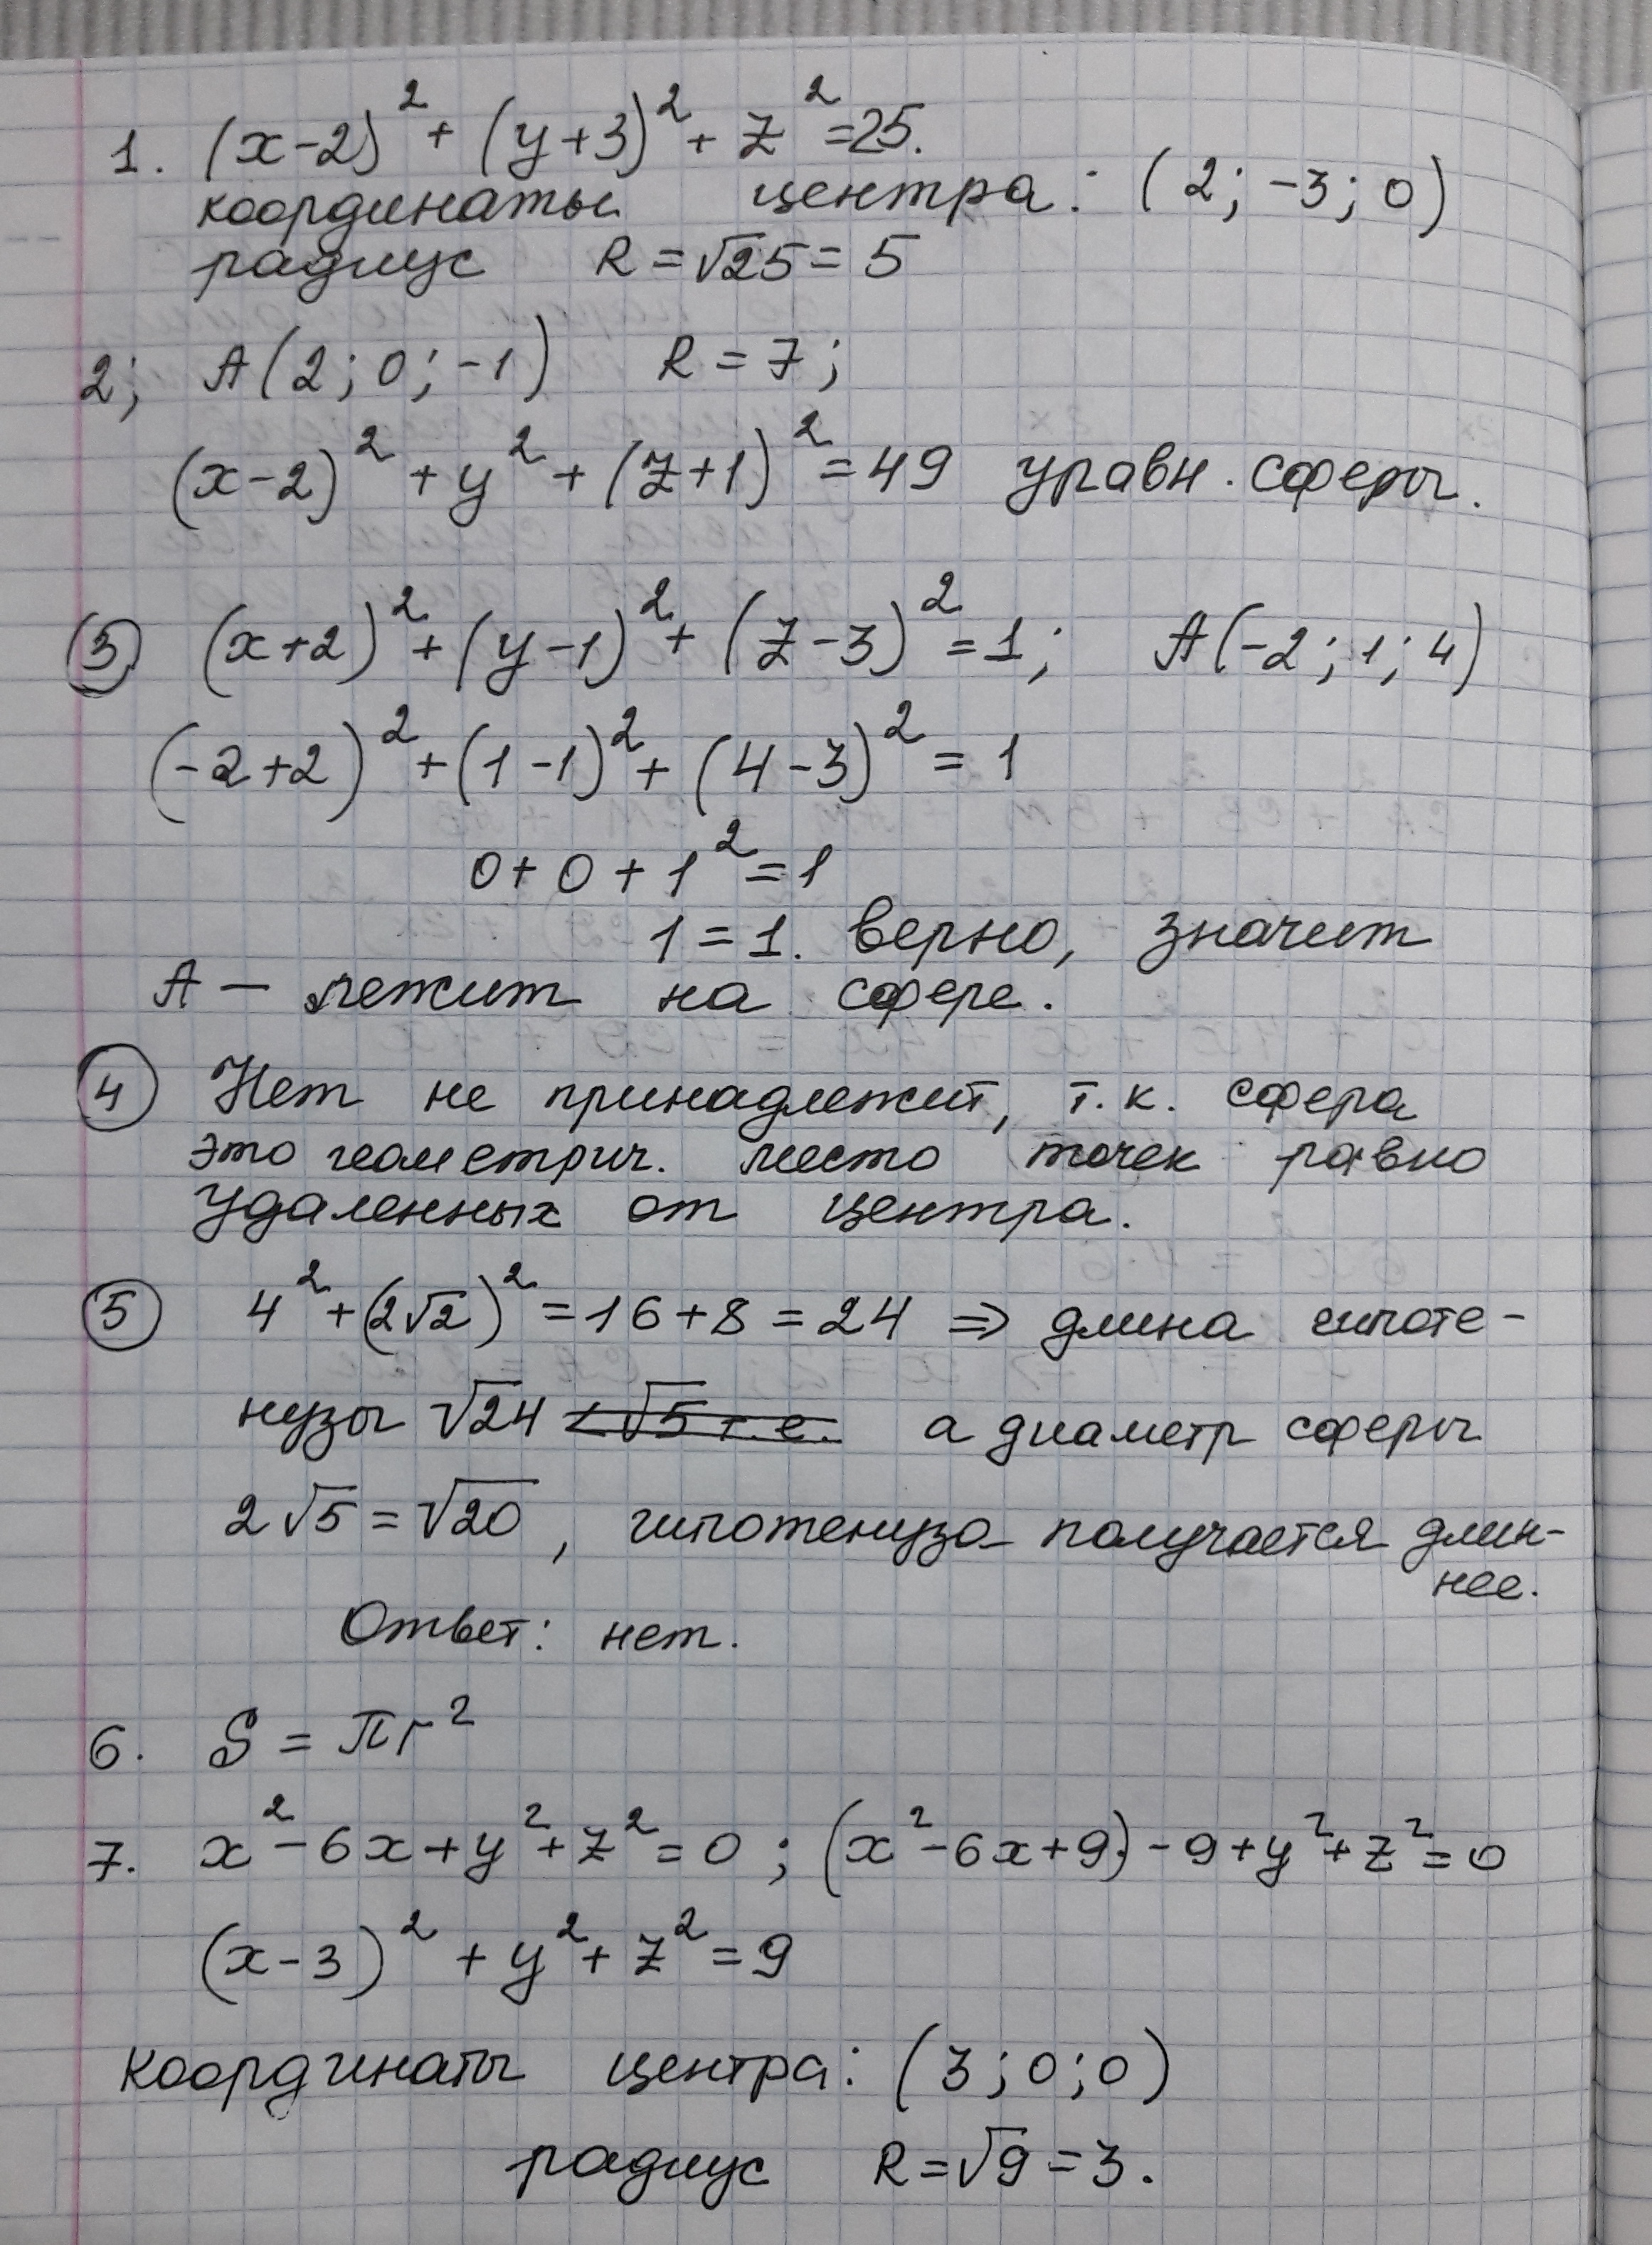 1. (x-2)² + (y+3)² + z² = 25.
координаты центра: (2; -3; 0)
радиус R = √25 = 5
2; A(2; 0; -1) R = 7;
(x-2)² + y² + (z+1)² = 49 уравн. сферы.
3) (x+2)² + (y-1)² + (z-3)² = 1; A(-2; 1; 4)
(-2+2)² + (1-1)² + (4-3)² = 1
0 + 0 + 1² = 1
1 = 1. верно, значит
A — лежит на сфере.
4 Нет не принадлежит, т.к. сфера
это геометрич. место точек равно
удаленных от центра.
5 4² + (2√2)² = 16 + 8 = 24 ⇒ длина гипоте-
нузы √24 < √5 т.е. а диаметр сферы
2√5 = √20, гипотенуза получается длин-
нее.
Ответ: нет.
6. S = πr²
7. x² - 6x + y² + z² = 0; (x² - 6x + 9) - 9 + y² + z² = 0
(x-3)² + y² + z² = 9
координаты центра: (3; 0; 0)
радиус R = √9 = 3.